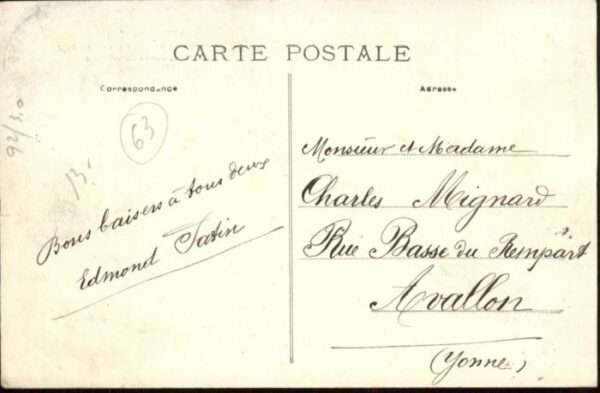 CARTE POSTALE
Correspondance
Adresse
92/3.0
63
13.
Bons baisers à tous deux
Edmond
Monsieur et Madame
Charles Mignard
Rue Basse du Rempart
Avallon
(Yonne)